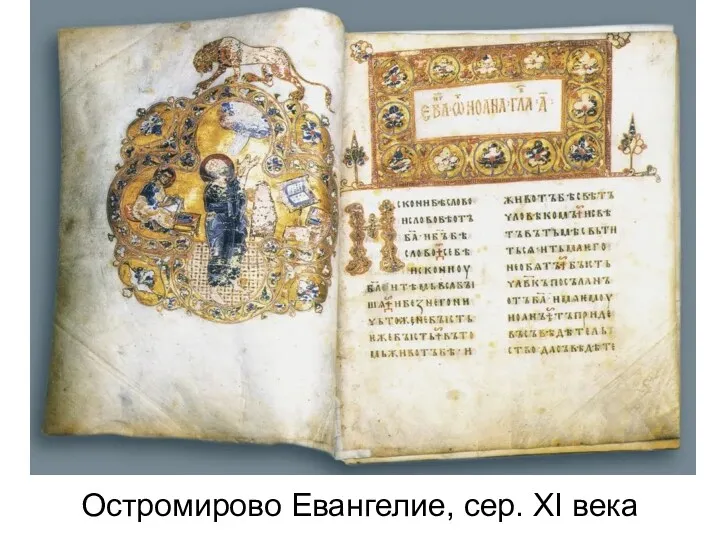 ЕВА ѾИОАНА ГЛА А
ИСКОНИ БѢ СЛОВО
И СЛОВО БѢ ОТЪ
БА И БЪ БѢ
СЛОВО
ИСКОНИ ОУ
БА И ТѢМЬ ВЬСА БЫ
ША И БЕЗ НЕГО НИ
ЧЬТОЖЕ НЕ БЫСТЬ
ѤЖЕ БЫСТЬ ВЪ ТО
МЬ ЖИВОТЪ БѢ И
ЖИВОТЪ БѢ СВѢТЪ
ЧЛОВѢКОМЪ И СВѢ
ТЪ ВЪ ТЬМѢ СВЬТИ
ТЬСА И ТЬМА ѤГО
НЕ ОБАТЪ БЫСТЬ
ЧЛВКЪ ПОСЪЛАНЪ
ОТЪ БА ИМА ѤМОУ
ИОАНЪ ТЪ ПРИДЕ
ВЪ СЪВѢДѢТЕЛЬ
СТВО ДА СЪВѢДѢТЕ
Остромирово Евангелие, сер. XI века